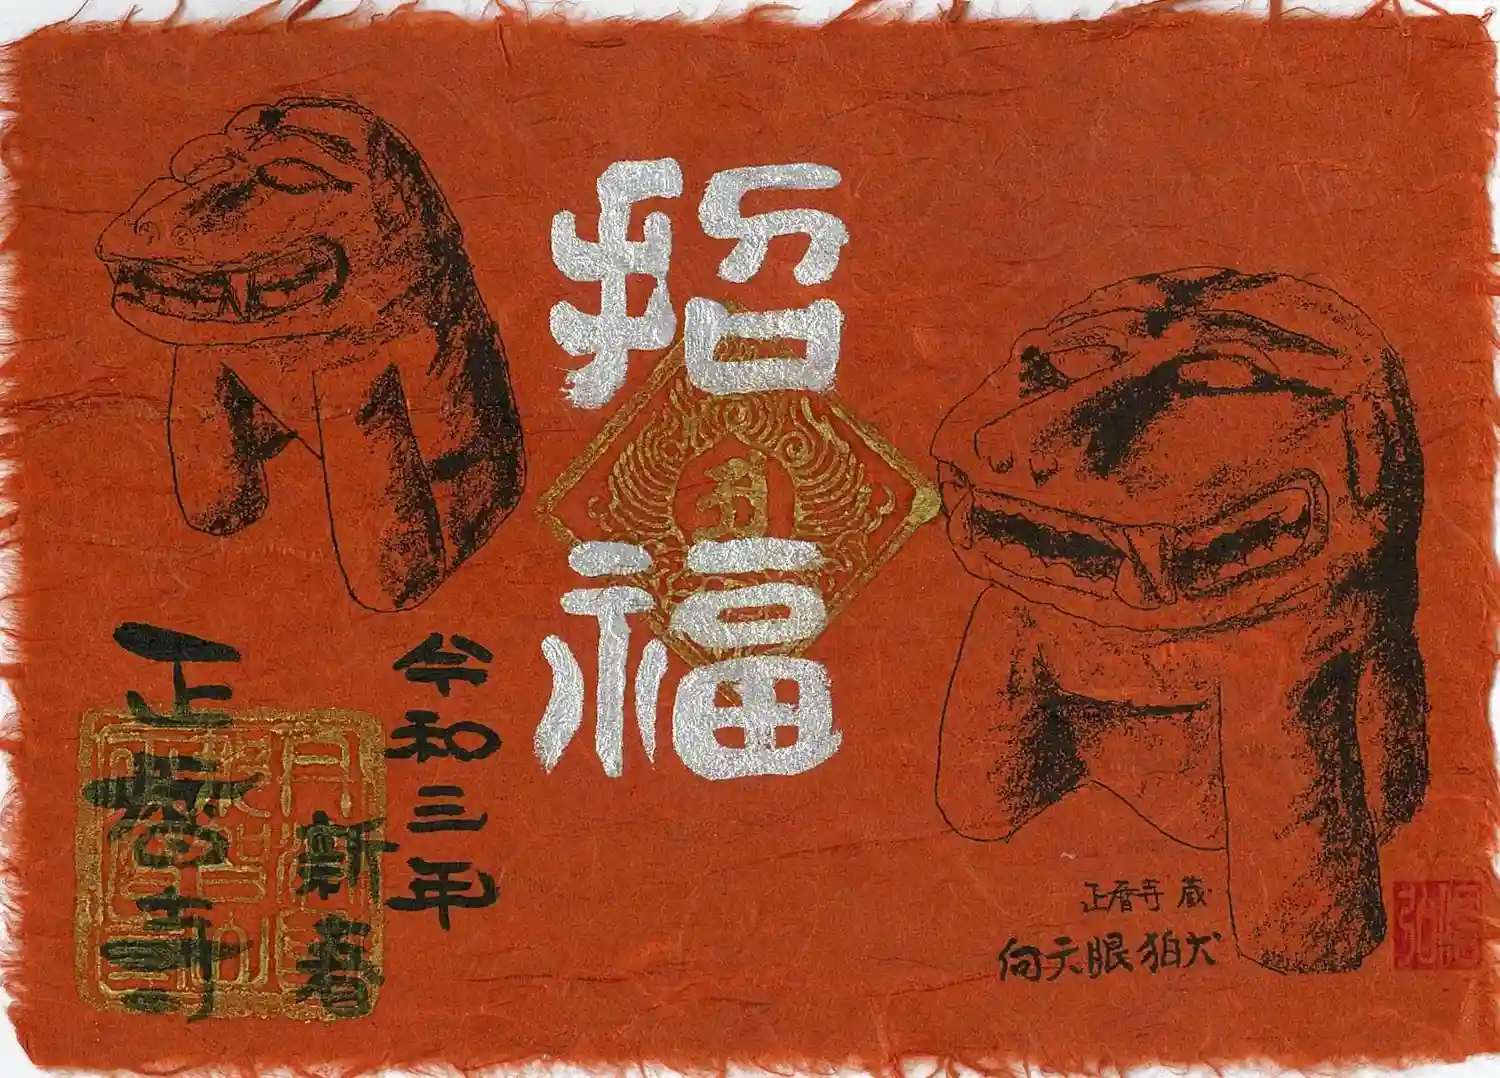 招福
令和三年
新春
正暦寺
丑
正暦寺 蔵
向天眼狛犬